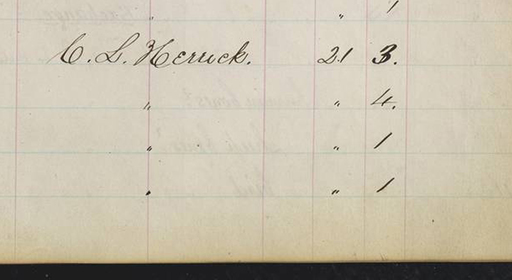 " " 1
C. L. Herrick. 21 3.
" " 4.
" " 1
" " 1